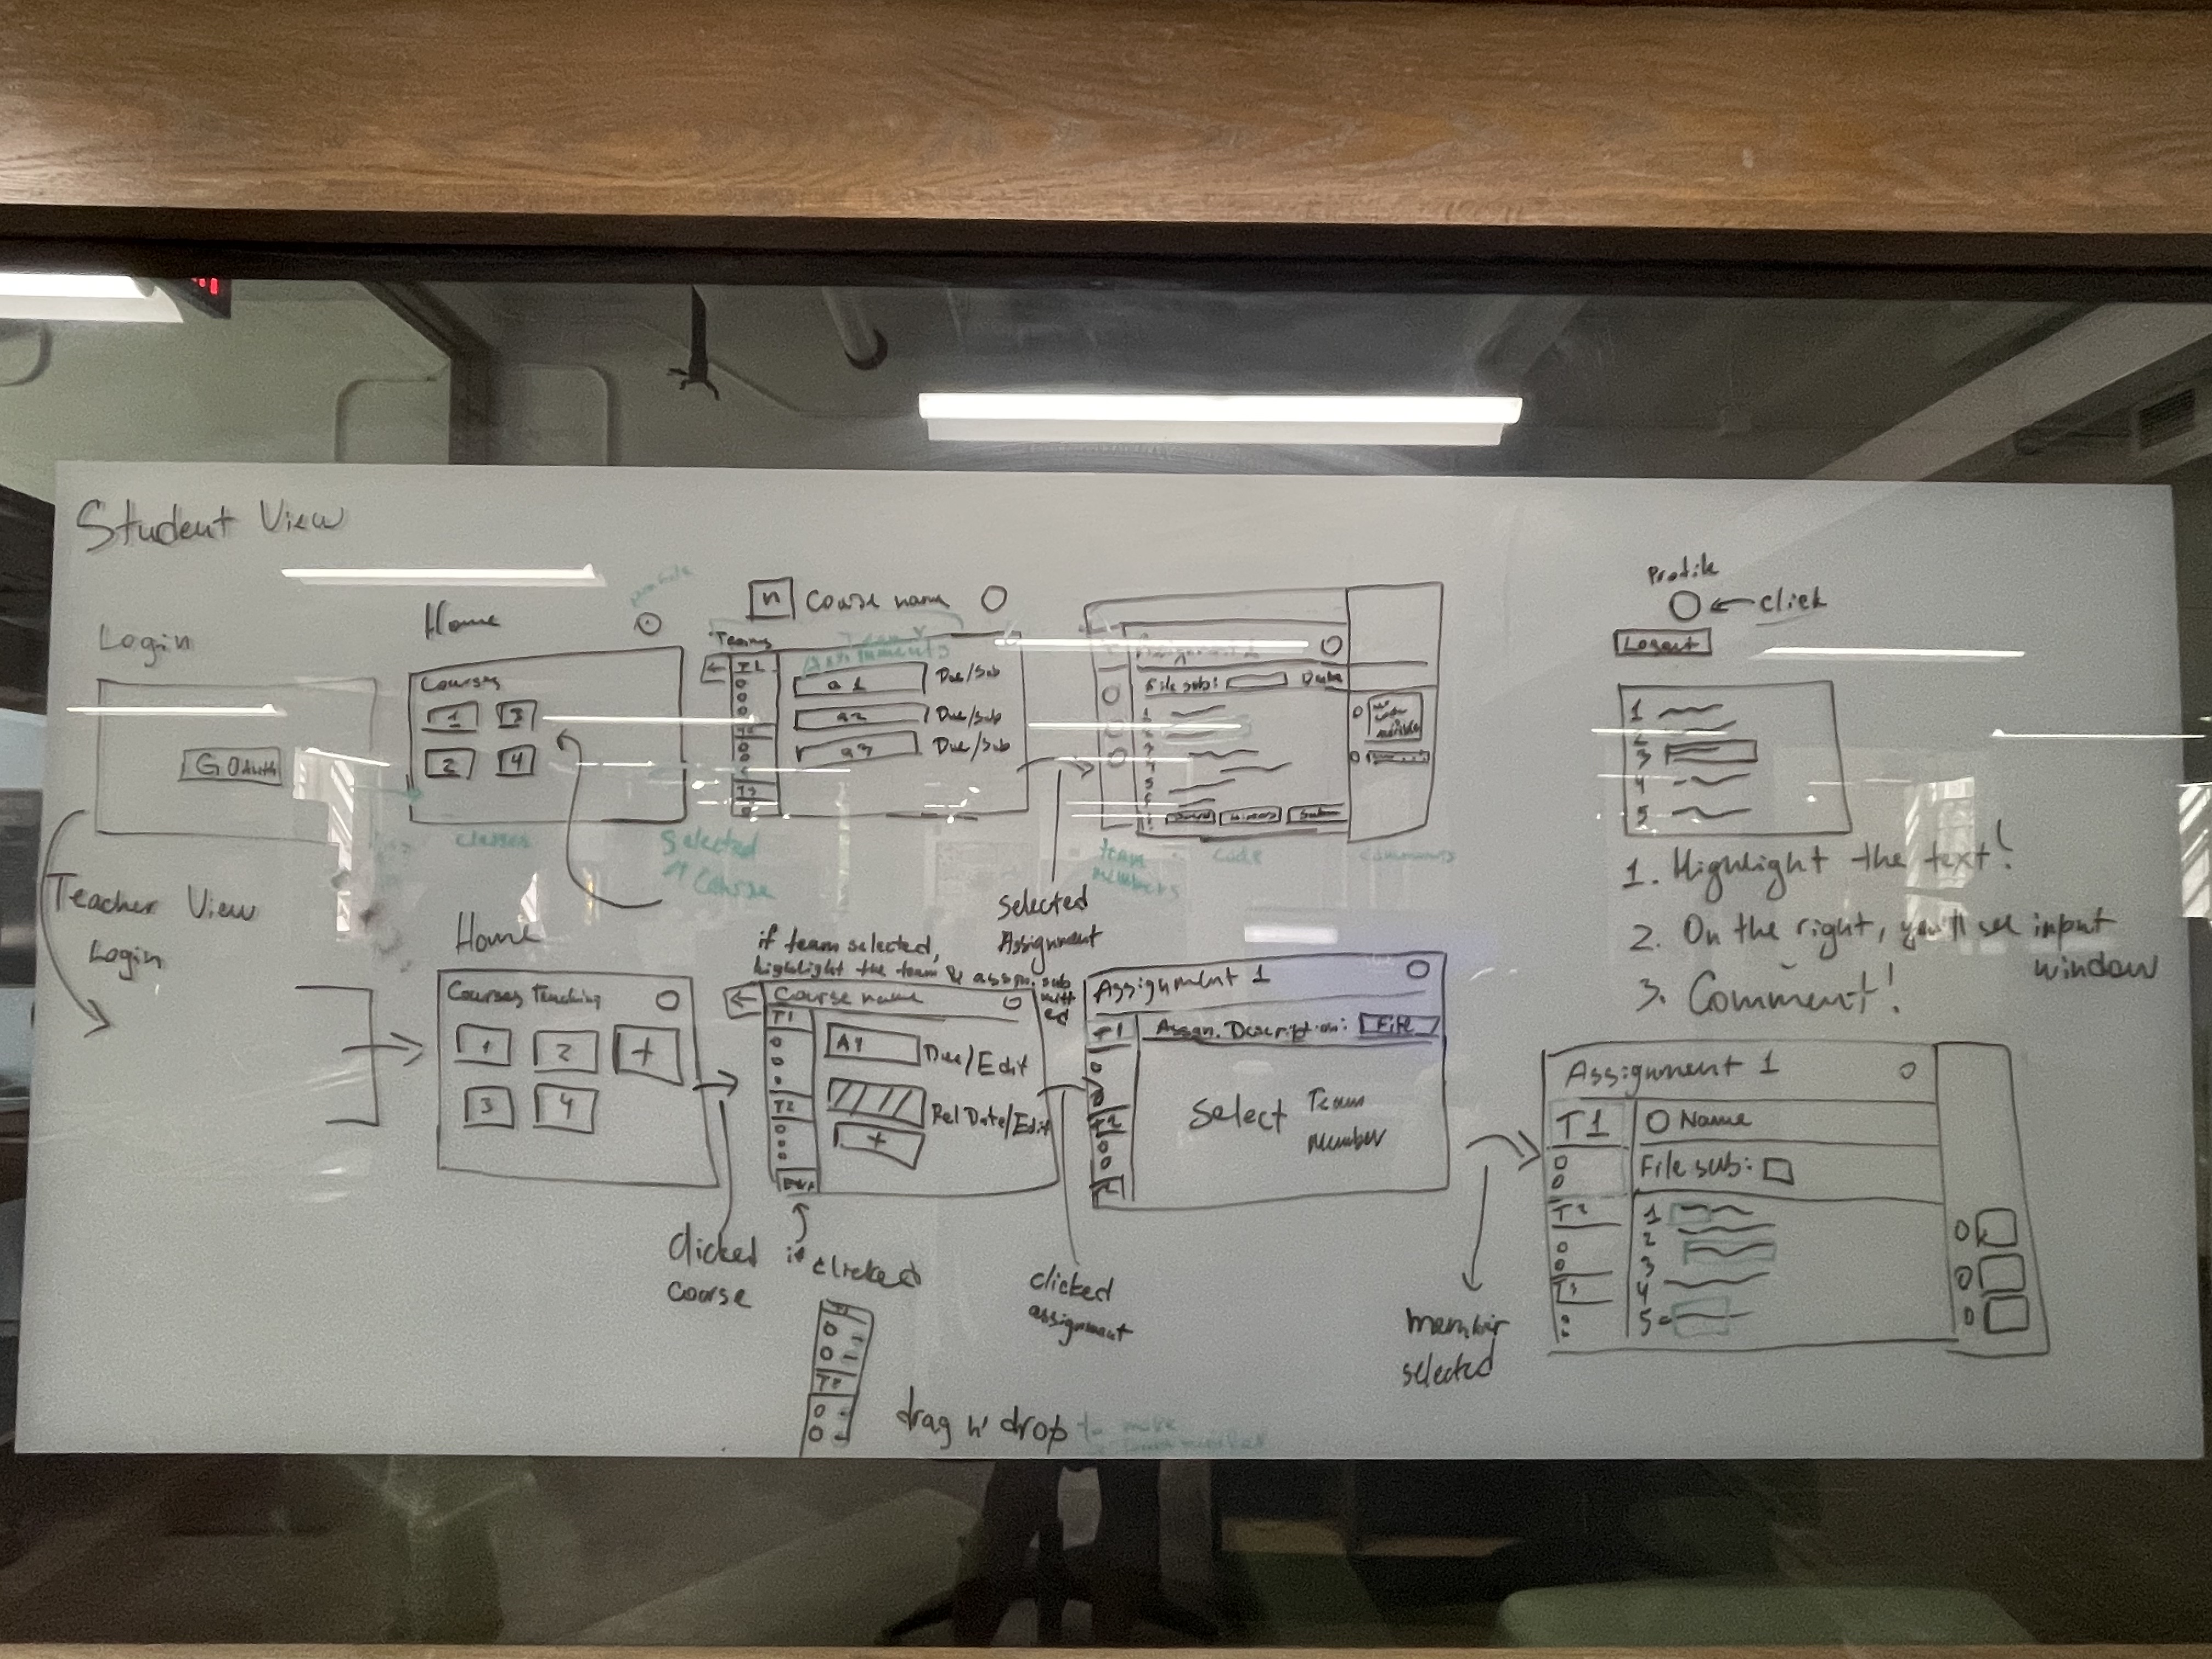 Student View
Login
G OAuth
Home
profile
Courses
1 3
2 4
classes
Selected
Course
n Course name
Teams
T1
Assignments
a1 Due/Sub
a2 Due/Sub
a3 Due/Sub
selected
Assignment
File sub:
1
team
members
code
comments
Profile
click
Logout
1
2
3
4
5
1. Highlight the text!
2. On the right, you'll see input
window
3. Comment!
Teacher View
Login
Home
Courses Teaching
1 2 +
3 4
clicked
course
if team selected,
highlight the team & assgn. sub
mitt
ed
Course name
T1
A1 Due/Edit
T2
Rel Date/Edit
+
if clicked
T2
drag n' drop to move
clicked
assignment
Assignment 1
T1 Assgn. Description: File
T2
Select Team
member
member
selected
Assignment 1
T1 Name
File sub:
T2
T3
1
2
3
4
5